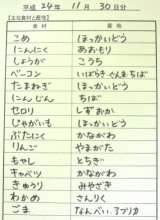 平成 24年 11月 30日分
【主な食材と産地】
食材 産地
こめ ほっかいどう
にんにく あおもり
しょうが こうち
ベーコン いばらき ぐんま ちば
たまねぎ ほっかいどう
にんじん ちば
セロリ しずおか
じゃがいも ほっかいどう
ぶたにく かながわ
りんご やまがた
もやし とちぎ
キャベツ かながわ
きゅうり みやざき
わかめ さんりく
ごま なんべい、アフリカ